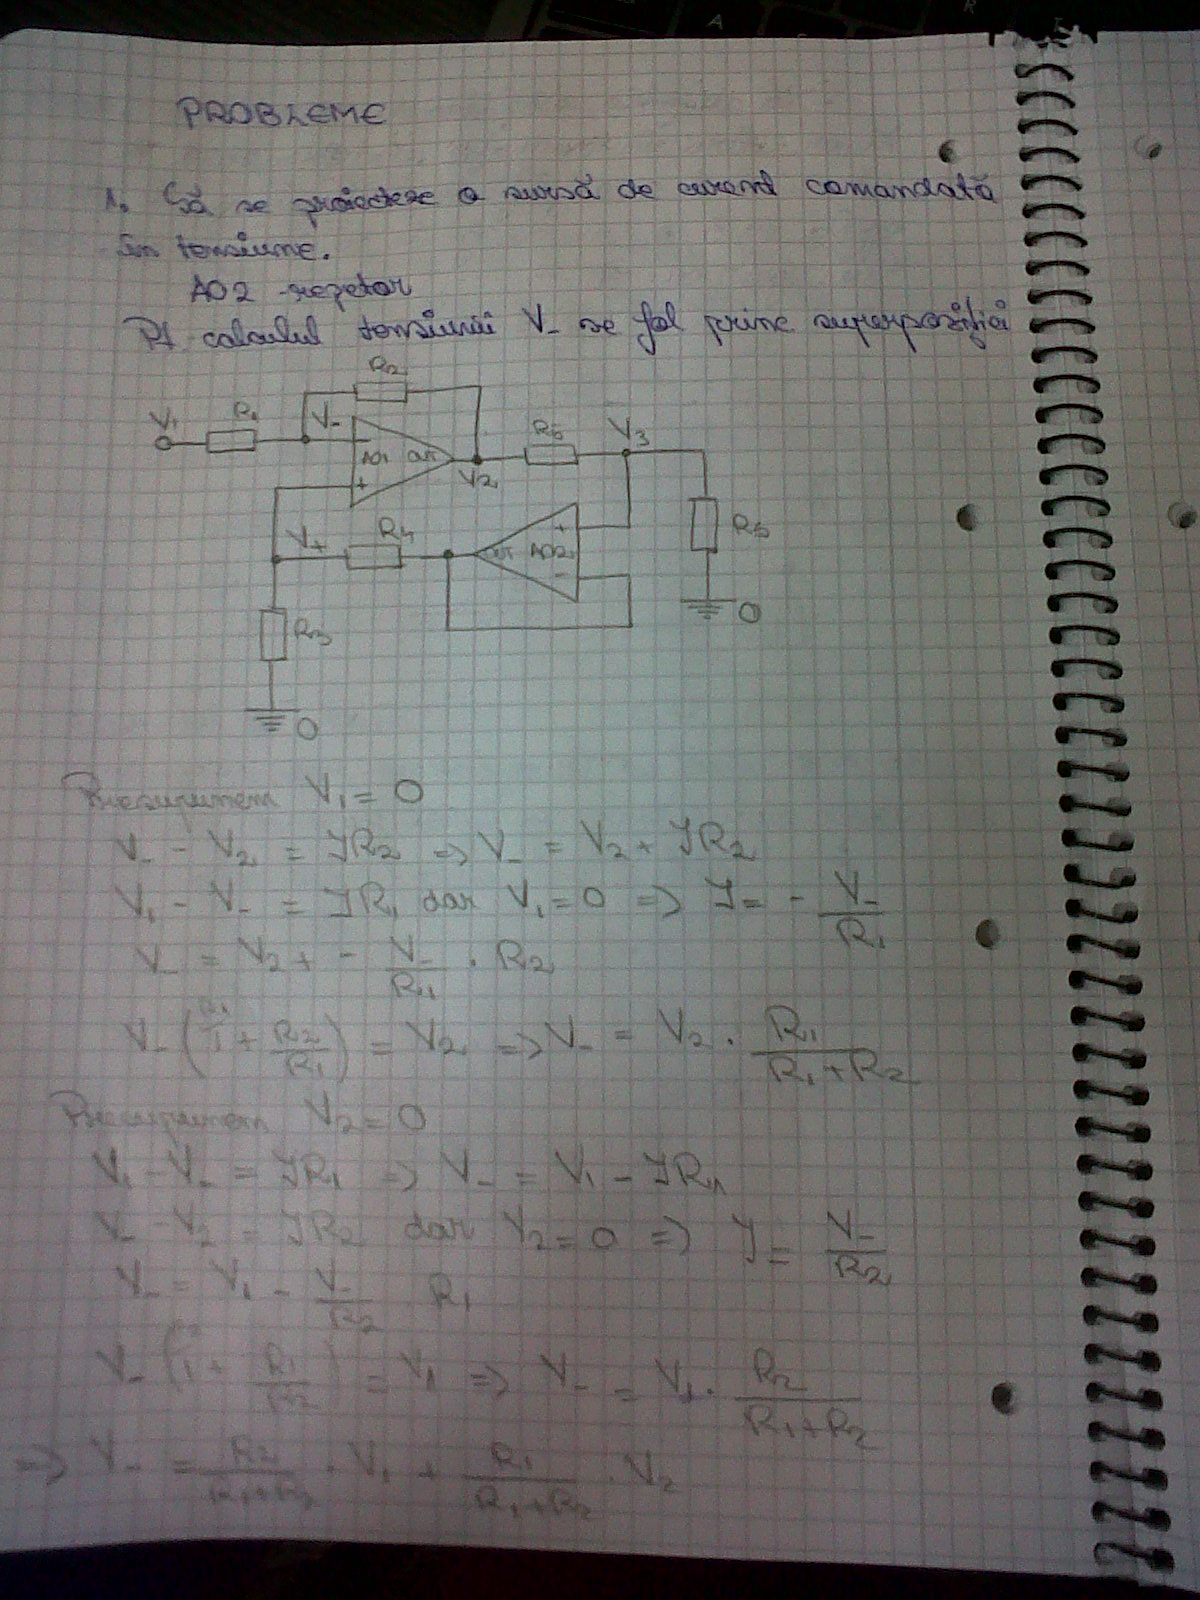 PROBLEME
1. Să se proiecteze o sursă de curent comandată
în tensiune.
AO2 repetor
Pt calculul tensiunii V_ se fol princ superpoziției
R2
V1 R1 V_ AO1 OUT V2 R6 V3
V+ R4 OUT AO2 R5
R3 0
0
Presupunem V1 = 0
V_ - V2 = IR2 => V_ = V2 + IR2
V1 - V_ = IR1 dar V1 = 0 => I = - V_/R1
V_ = V2 + - V_/R1 · R2
V_ (1 + R2/R1) = V2 => V_ = V2 · R1/(R1+R2)
Presupunem V2 = 0
V1 - V_ = IR1 => V_ = V1 - IR1
V_ - V2 = IR2 dar V2 = 0 => I = V_/R2
V_ = V1 - V_/R2 R1
V_ (1 + R1/R2) = V1 => V_ = V1 · R2/(R1+R2)
=> V_ = R2/(R1+R2) · V1 + R1/(R1+R2) · V2